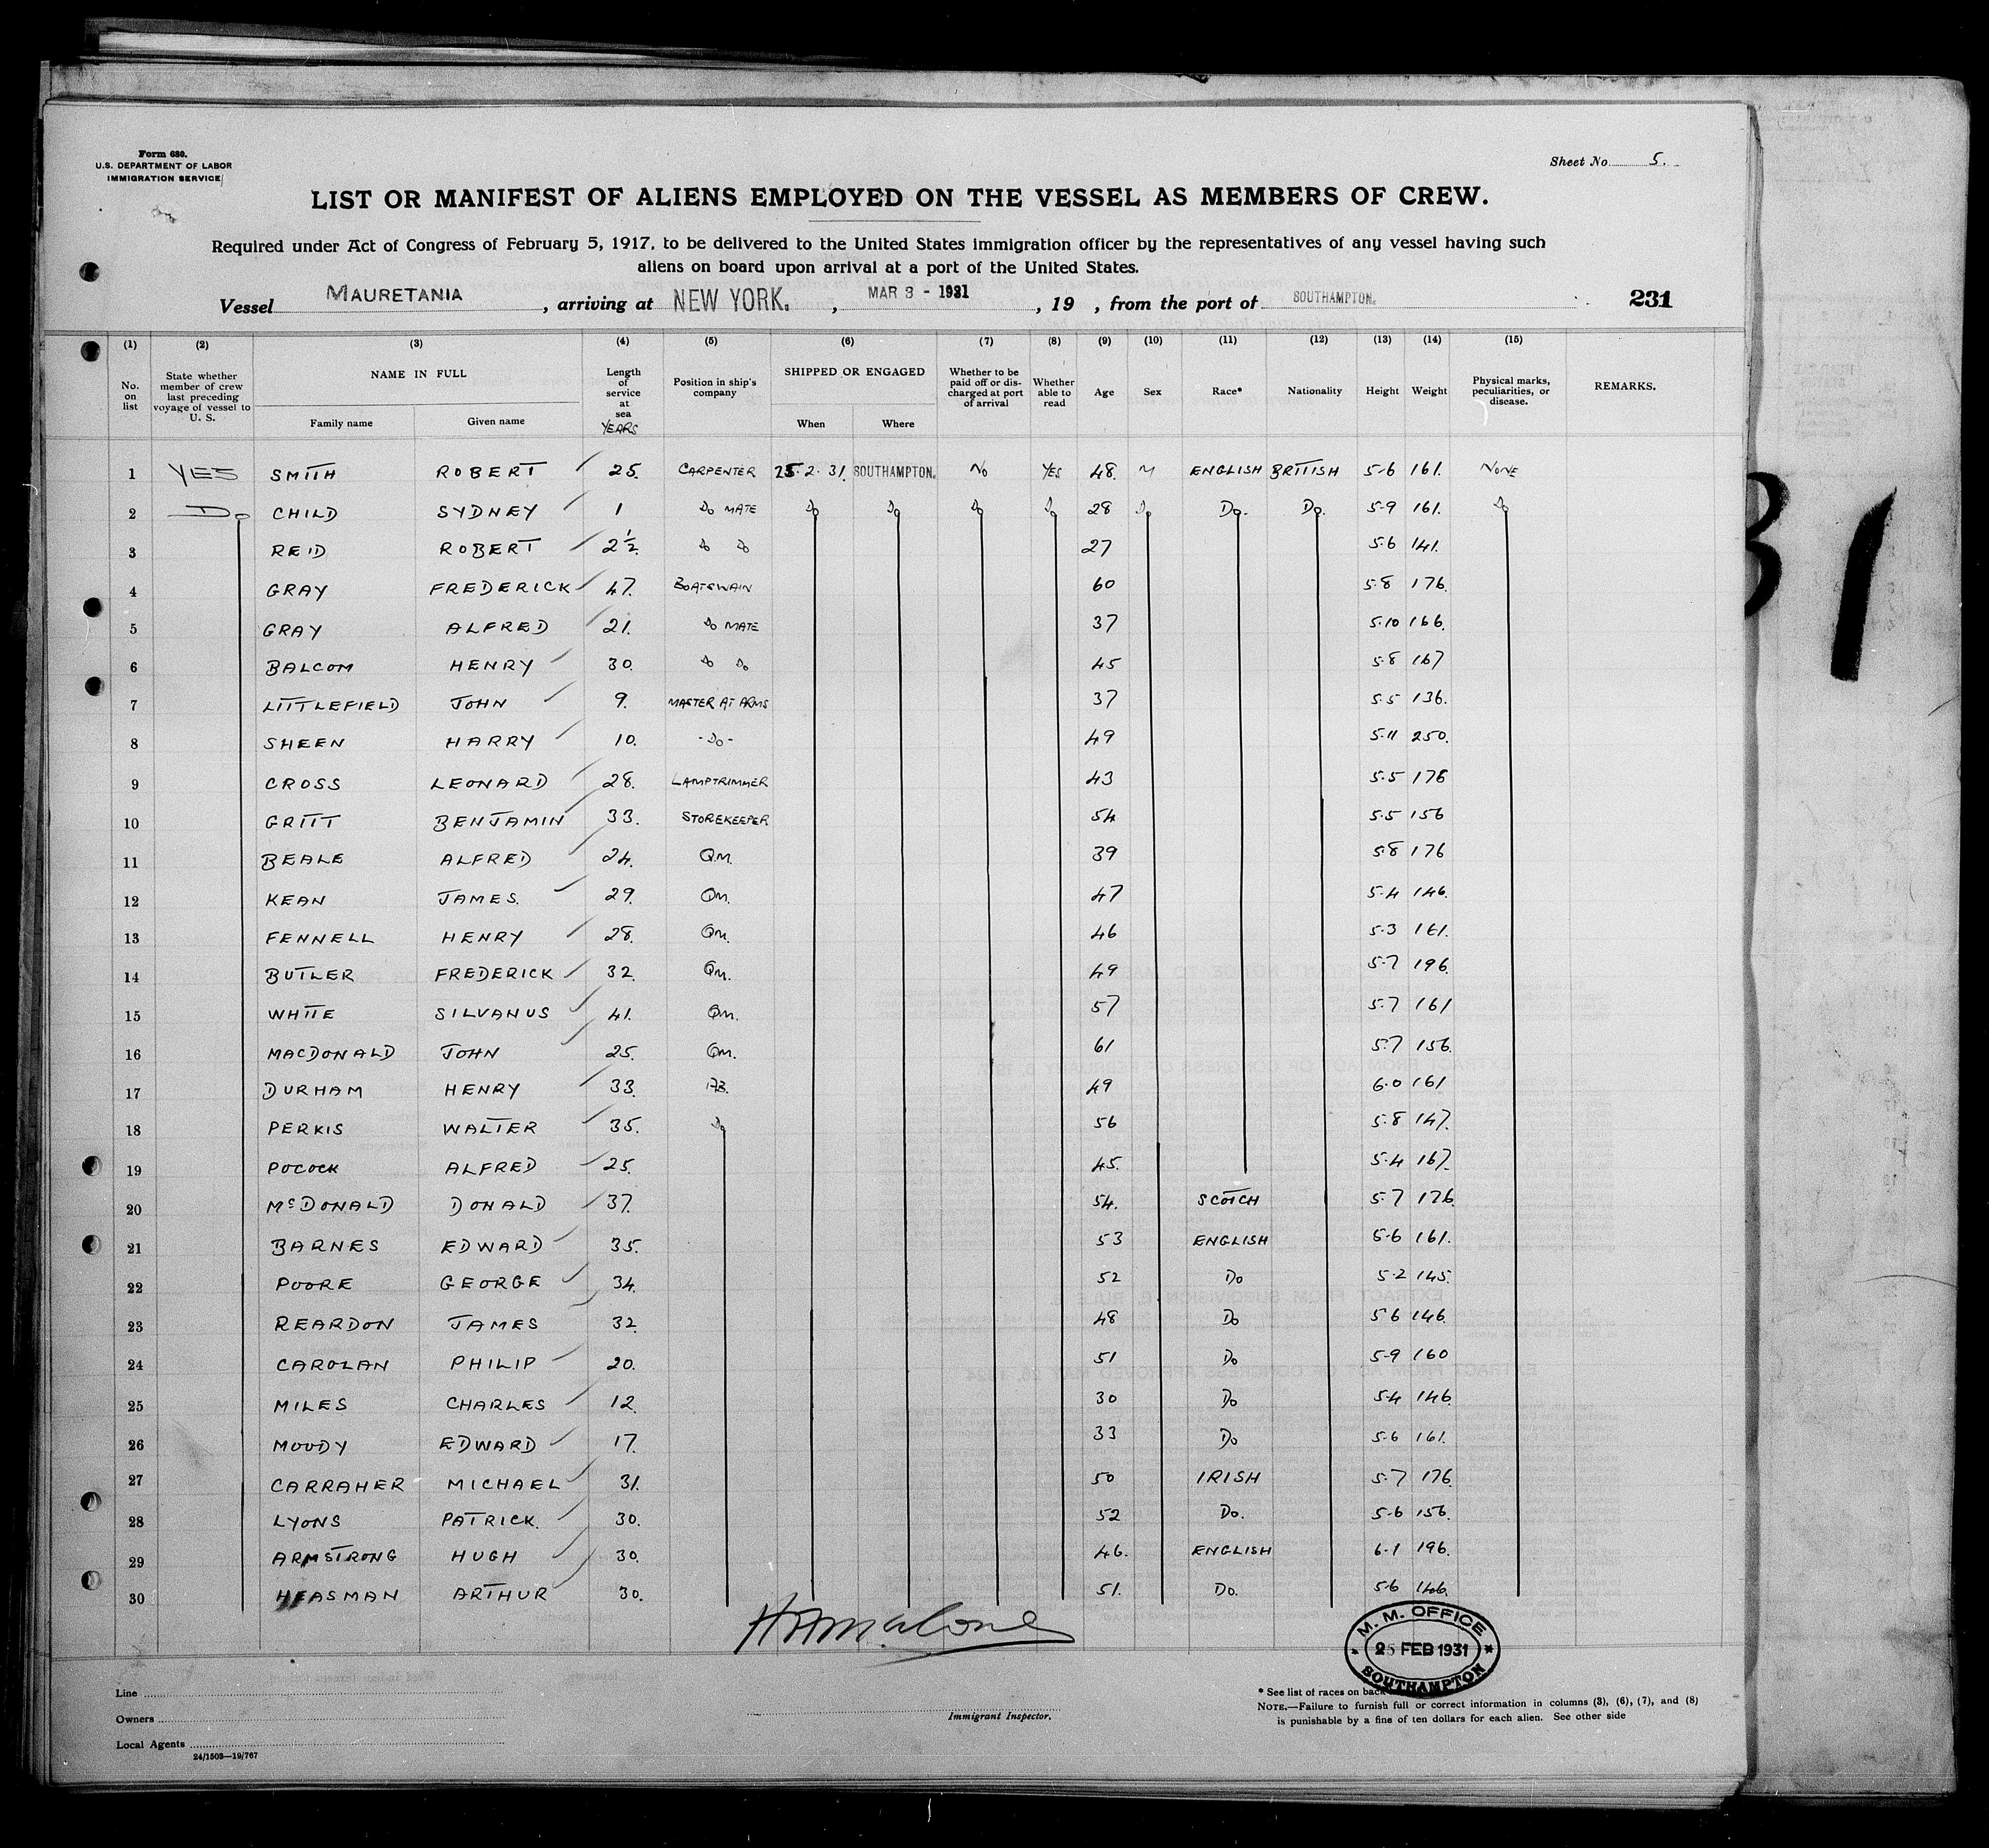 Form 680.
U.S. DEPARTMENT OF LABOR
IMMIGRATION SERVICE
Sheet No. 5.
LIST OR MANIFEST OF ALIENS EMPLOYED ON THE VESSEL AS MEMBERS OF CREW.
Required under Act of Congress of February 5, 1917, to be delivered to the United States immigration officer by the representatives of any vessel having such
aliens on board upon arrival at a port of the United States.
Vessel MAURETANIA, arriving at NEW YORK., MAR 3 - 1931, 19 , from the port of SOUTHAMPTON. 231
(1) (2) (3) (4) (5) (6) (7) (8) (9) (10) (11) (12) (13) (14) (15)
No. on list State whether member of crew last preceding voyage of vessel to U. S. NAME IN FULL Family name Given name Length of service at sea YEARS Position in ship's company SHIPPED OR ENGAGED When Where Whether to be paid off or discharged at port of arrival Whether able to read Age Sex Race* Nationality Height Weight Physical marks, peculiarities, or disease. REMARKS.
1 YES SMITH ROBERT 25. CARPENTER 25.2.31. SOUTHAMPTON. NO YES 48. M ENGLISH BRITISH 5-6 161. NONE
2 Do CHILD SYDNEY 1 Do MATE Do Do Do Do 28 Do Do. Do. 5-9 161. Do
3 REID ROBERT 2½. Do Do 27 5.6 141.
4 GRAY FREDERICK 47. BOATSWAIN 60 5.8 176.
5 GRAY ALFRED 21. Do MATE 37 5.10 166.
6 BALCOM HENRY 30. Do Do 45 5.8 167
7 LITTLEFIELD JOHN 9. MASTER AT ARMS 37 5.5 136.
8 SHEEN HARRY 10. -Do- 49 5.11 250.
9 CROSS LEONARD 28. LAMPTRIMMER 43 5.5 176
10 GRITT BENJAMIN 33. STOREKEEPER 54 5.5 156
11 BEALE ALFRED 24. Q.M. 39 5.8 176
12 KEAN JAMES. 29. QM. 47 5.4 146.
13 FENNELL HENRY 28. QM. 46 5.3 161.
14 BUTLER FREDERICK 32. QM. 49 5.7 196.
15 WHITE SILVANUS 41. QM. 57 5.7 161
16 MACDONALD JOHN 25. QM. 61 5.7 156.
17 DURHAM HENRY 33. AB. 49 6.0 161
18 PERKIS WALTER 35. Do 56 5.8 147.
19 POCOCK ALFRED 25. 45. 5.4 167.
20 McDONALD DONALD 37. 54. SCOTCH 5.7 176.
21 BARNES EDWARD 35. 53 ENGLISH 5-6 161.
22 POORE GEORGE 34. 52 Do 5.2 145.
23 REARDON JAMES 32. 48 Do 5.6 146.
24 CAROLAN PHILIP 20. 51 Do 5-9 160
25 MILES CHARLES 12. 30 Do 5.4 146.
26 MOODY EDWARD 17. 33 Do 5.6 161.
27 CARRAHER MICHAEL 31. 50 IRISH 5.7 176.
28 LYONS PATRICK. 30. 52 Do. 5-6 156.
29 ARMSTRONG HUGH 30. 46. ENGLISH 6.1 196.
30 HEASMAN ARTHUR 30. 51. Do. 5.6 146.
M. M. OFFICE
25 FEB 1931
SOUTHAMPTON
Line
Owners
Local Agents
24/1503—19/767
Immigrant Inspector.
* See list of races on back
NOTE.—Failure to furnish full or correct information in columns (3), (6), (7), and (8)
is punishable by a fine of ten dollars for each alien. See other side